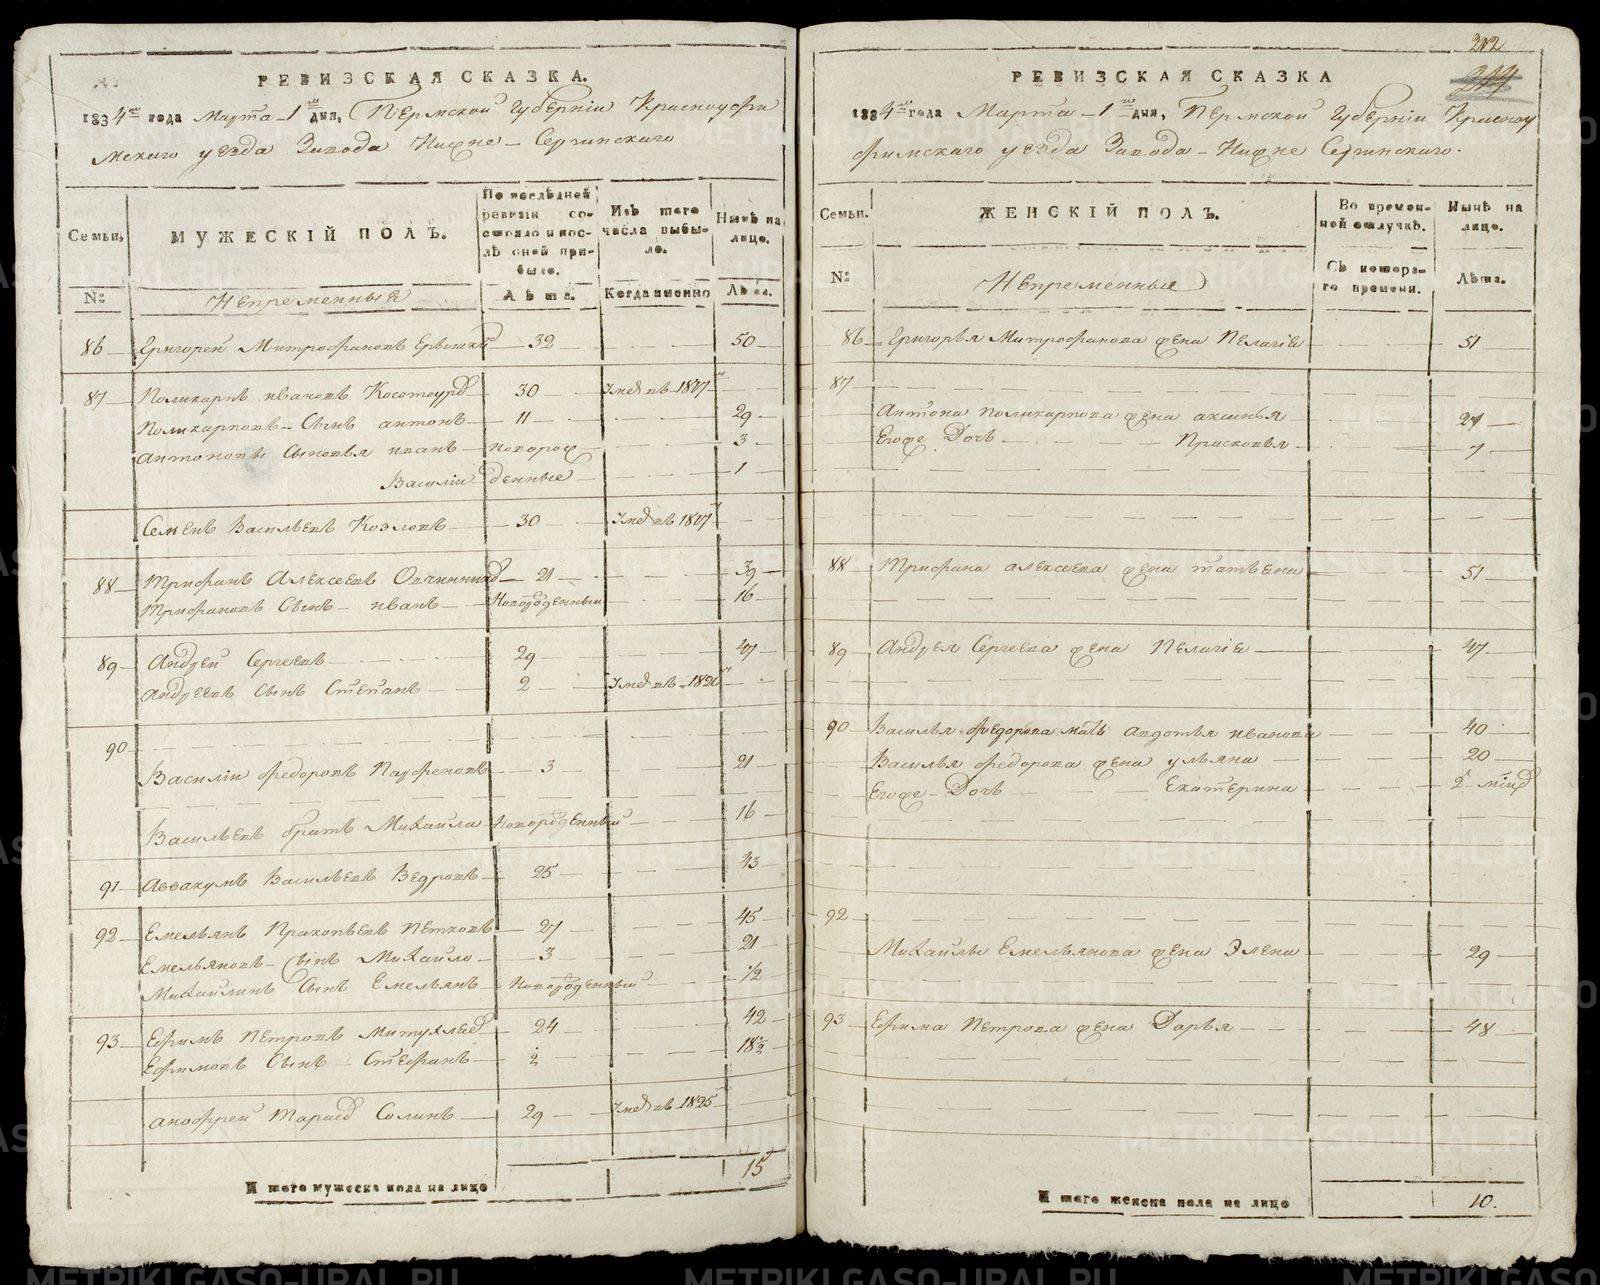 РЕВИЗСКАЯ СКАЗКА.
1834го года Марта 1го дня, Пермской Губернiи Красноуфи
мскаго уезда Завода Нижне-Сергинскаго
Семьи.
МУЖЕСКIЙ ПОЛЪ.
По последней ревизiи состояло и после оной прибыло.
Изъ того числа выбыло.
Ныне на лицо.
№
Непременныя
Лета.
Когда именно
Лета.
86 Григорей Митрофановъ 32 50
87 Поликарпъ Ивановъ 30 Умеръ въ 1827
Поликарповъ Сынъ Антонъ 11 29
Антоновы Сыновья Иванъ новорож 3
Василiй денные 1
Семенъ Васильевъ Козловъ 30 Умеръ въ 1827
88 Трифанъ Алексеевъ 21 39
Трифановъ Сынъ Иванъ Новорожденный 16
89 Андрей Сергеевъ 29 47
Андреевъ Сынъ Степанъ 2 Умеръ въ 1826
90
Василiй Федоровъ Парфеновъ 3 21
Васильевъ братъ Михайла Новорожденный 16
91 Аввакумъ Васильевъ Ведровъ 25 43
92 Емельянъ Пракопьевъ Петховъ 27 45
Емельяновъ Сынъ Михайло 3 21
Михайлинъ Сынъ Емельянъ Новорожденный 1/2
93 Ефимъ Петровъ 24 42
Ефимовъ Сынъ Стефанъ 1/2 18 1/2
Анофрей Солинъ 29 Умеръ въ 1825
И того мужеска пола на лицо 15
212
РЕВИЗСКАЯ СКАЗКА
1834го года Марта 1го дня, Пермской Губернiи Красноу
фимскаго уезда Завода Нижне Сергинскаго.
Семьи.
ЖЕНСКIЙ ПОЛЪ.
Во временной отлучке.
Ныне на лицо.
№
Непременныя
Съ котораго времени.
Лета.
86 Григорья Митрофанова жена Пелагiя 51
87
Антона Поликарпова жена Аксинья 27
Егоже Дочь Прасковья 7
88 Трифана Алексеева жена Татьяна 51
89 Андрея Сергеева жена Пелагiя 47
90 Василья Федорова мать Авдотья Иванова 40
Василья Федорова жена Ульяна 20
Егоже Дочь Екатерина 2
92
Михайлы Емельянова жена Элена 29
93 Ефима Петрова жена Дарья 48
И того женска пола на лицо 10.
METRIKI.GASO-URAL.RU